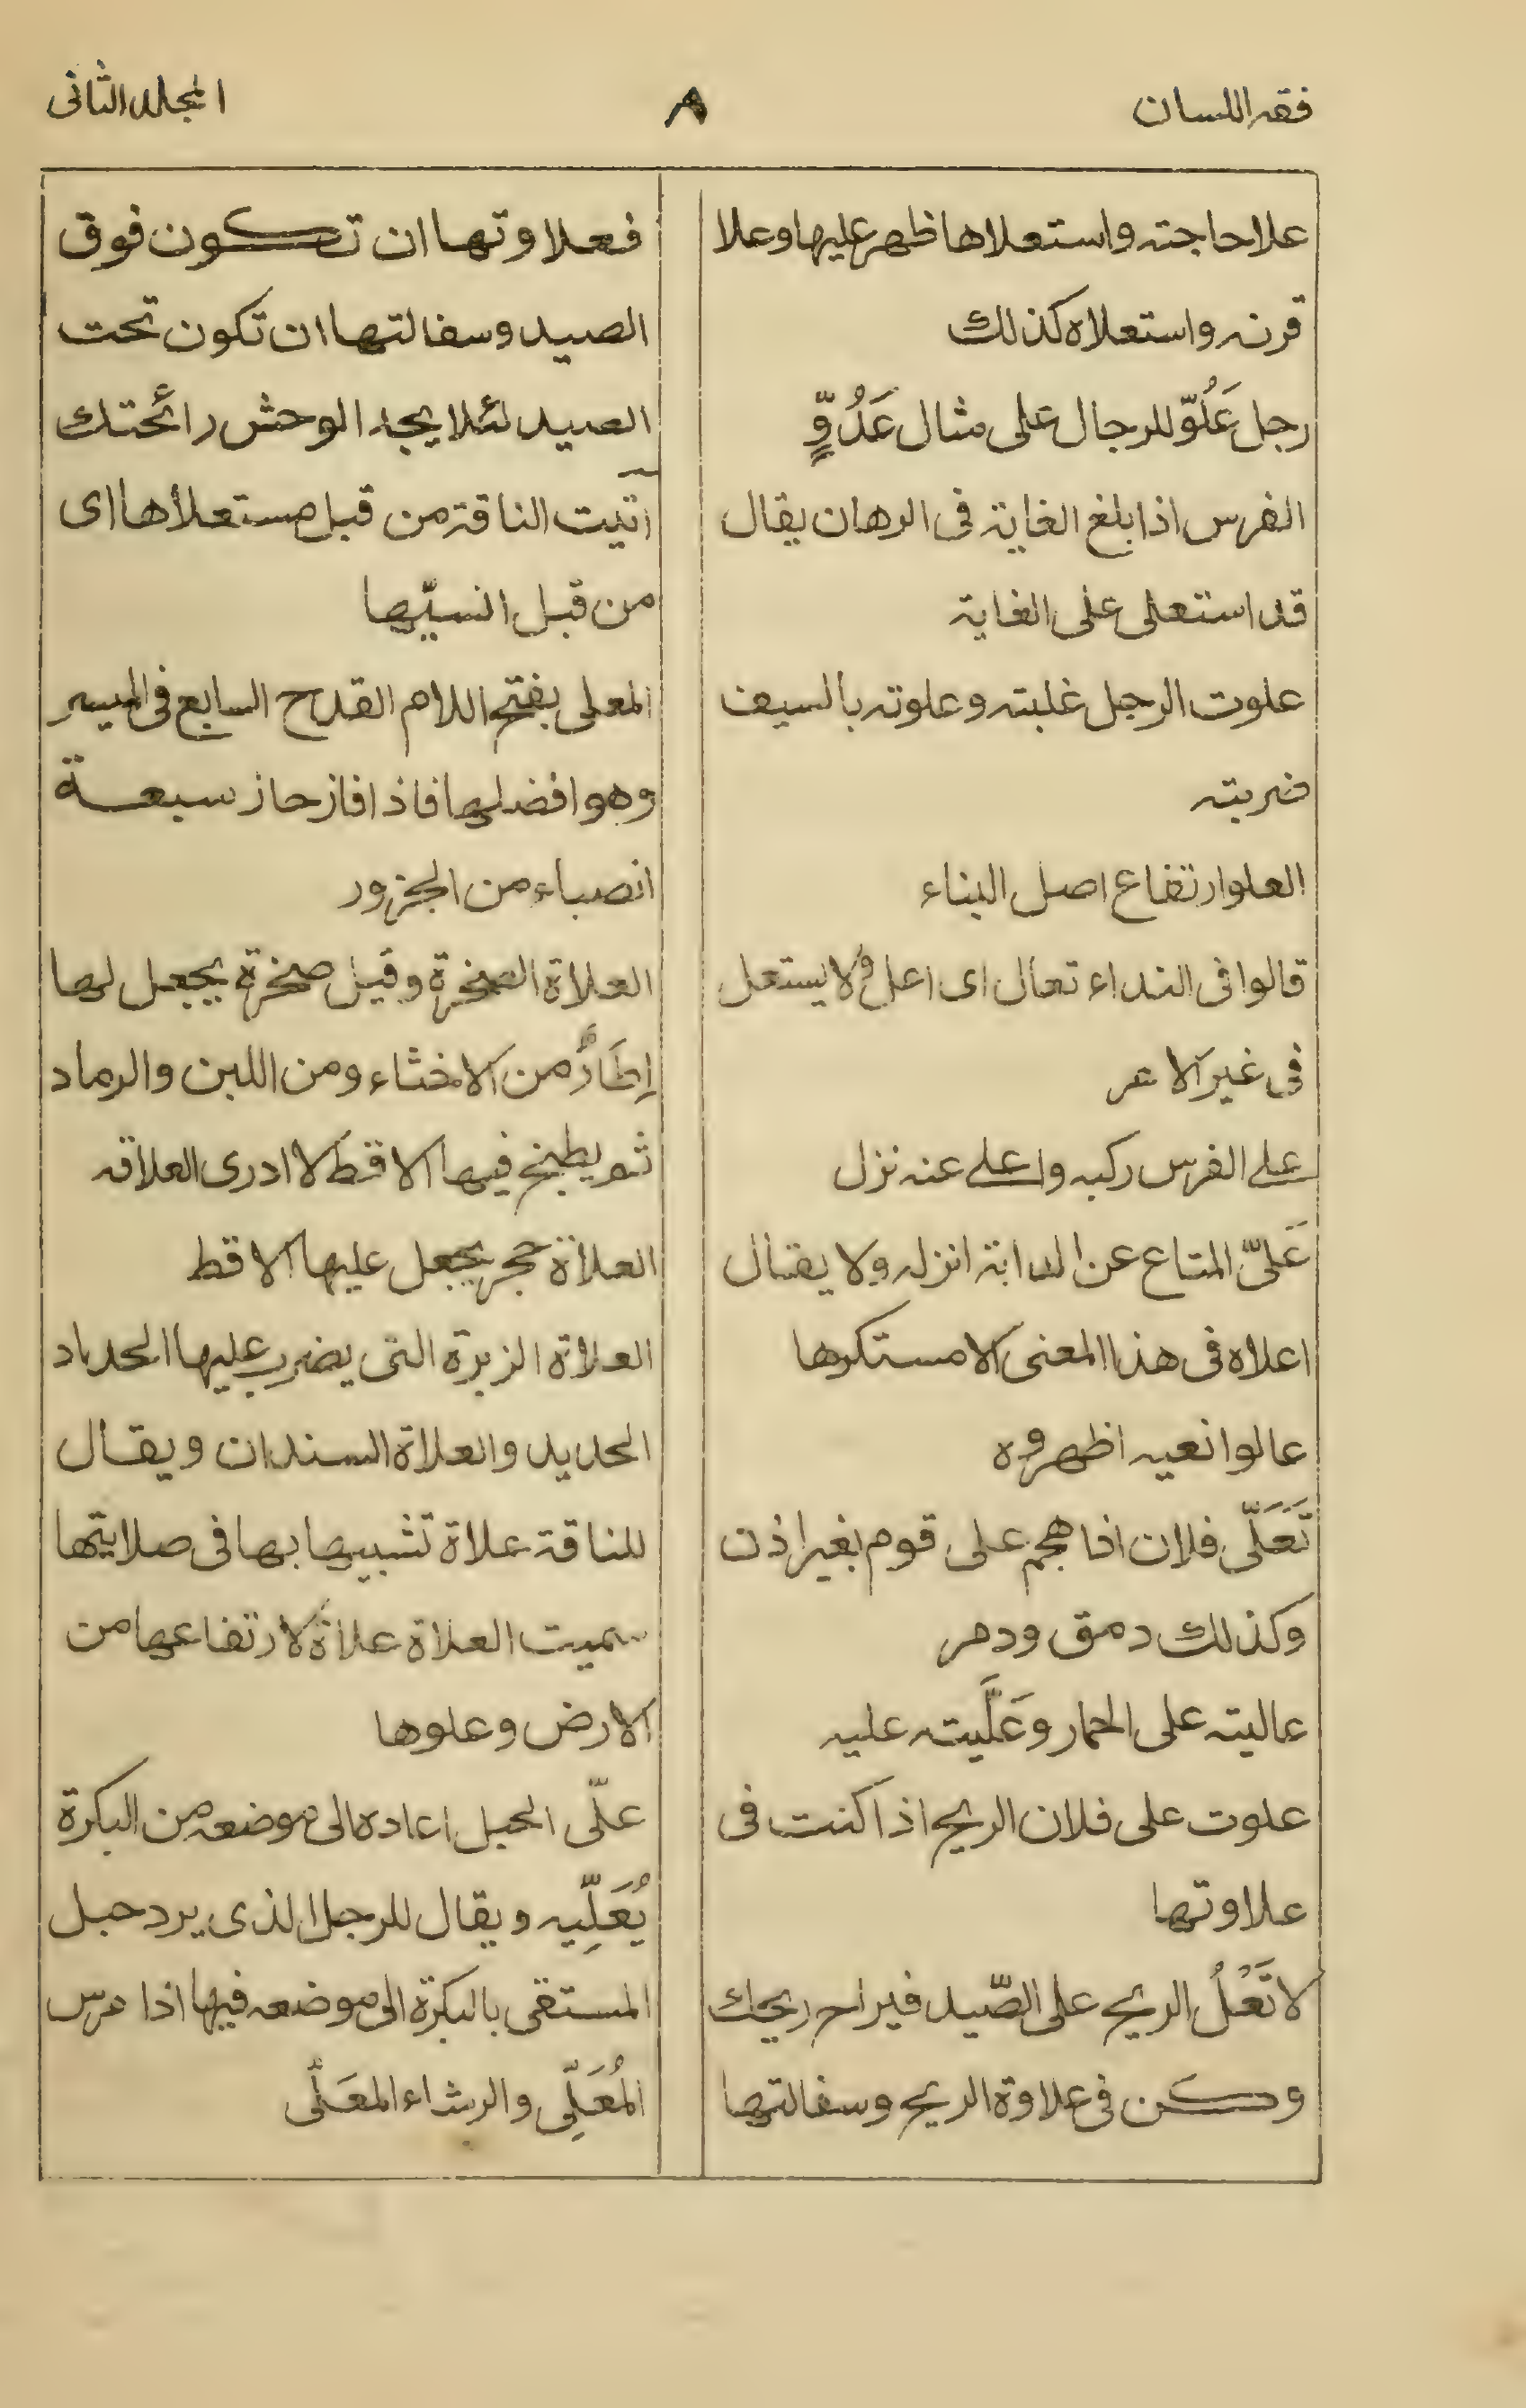 فقه اللسان
٨
المجلد الثانى
علا حاجته واستعلاها ظهر عليها وعلا
قرنه واستعلاه كذلك
رجل عَلُوّ للرجال على مثال عَدُوٍّ
الفرس اذا بلغ الغاية فى الرهان يقال
قد استعلى على الغاية
علوت الرجل غلبته وعلوته بالسيف
ضربته
العلو ارتفاع اصل البناء
قالوا فى النداء تعال اى اعل ولا يستعمل
فى غير الامر
على الفرس ركبه واعلى عنه نزل
عَلّى المتاع عن الدابة انزله ولا يقال
اعلاه فى هذا المعنى الا مستكرها
عالوا نعيه اظهروه
تَعَلّى فلان اذا هجم على قوم بغير اذن
وكذلك دمق ودمر
عاليته على الحمار وعَلَّيته عليه
علوت على فلان الريح اذا كنت فى
علاوتها
لا تَعْلُ الريح على الصّيد فيراح ريحك
وكن فى علاوة الريح وسفالتها
فعلاوتها ان تكون فوق
الصيد وسفالتها ان تكون تحت
الصيد لئلا يجد الوحش رائحتك
اتيت الناقة من قبل مستعلاها اى
من قبل انسيّها
المعلى بفتح اللام القدح السابع فى الميسر
وهو افضلها فاذا فاز حاز سبعة
انصباء من الجزور
العلاة الصخرة وقيل صخرة يجعل لها
اِطَارٌ من الاخثاء ومن اللبن والرماد
ثم يطبخ فيها الاقط لا ادرى العلاقه
العلاة حجر يجعل عليها الاقط
العلاة الزبرة التى يضرب عليها الحداد
الحديد والعلاة السندان ويقال
للناقة علاة تشبيها بها فى صلابتها
سميت العلاة علاةً لارتفاعها من
الارض وعلوها
علّى الحبل اعاده الى موضعه من البكرة
يُعَلِّيه ويقال للرجل الذى يرد حبل
المستقى بالبكرة الى موضعه فيها اذا مرس
المُعَلِّى والرشاء المعَلَّى